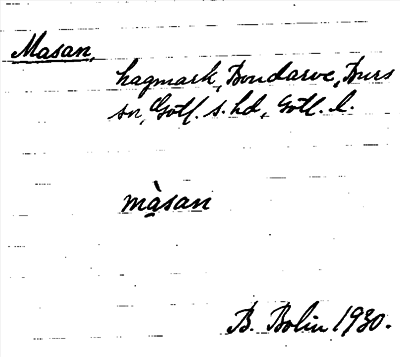 Masan,
hagmark, Bondarve, Burs
sn, Gotl. s. hd, Gotl. l.
màsan
B. Bolin 1930.